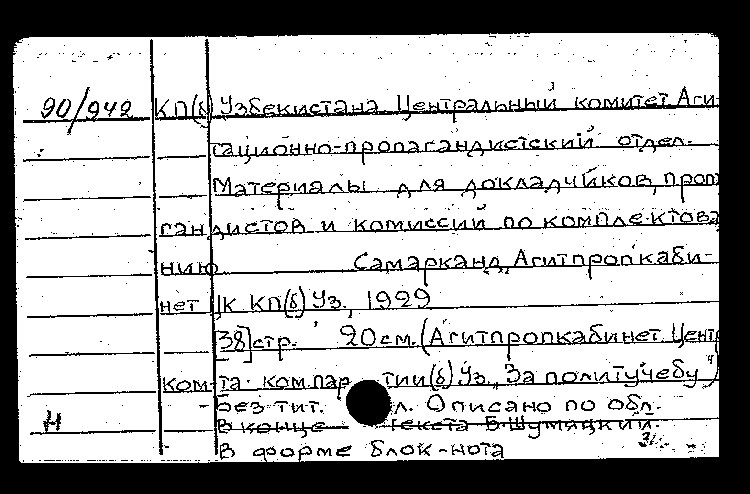 90/942 КП(б)Узбекистана. Центральный комитет. Аги-
тационно-пропагандистский отдел.
Материалы для докладчиков, проп
гандистов и комиссий по комплектова
нию Самарканд, Агитпропкаби-
нет ЦК КП(б)Уз., 1929
38]стр. 20см. (Агитпропкабинет Центр
ком-та компар тии(б) Уз. "За политучебу")
Без тит. л. Описано по обл.
Н В конце текста В. Шумяцкий.
В форме блок-нота